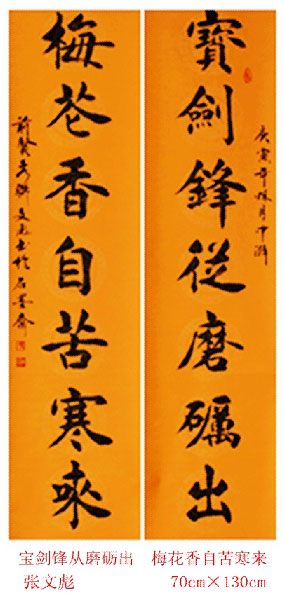 寶劍鋒從磨礪出
庚寅年
月中
梅花香自苦寒來
前賢
聯文彪书於石墨齋
宝剑锋从磨砺出 梅花香自苦寒来
张文彪 70cm×130cm